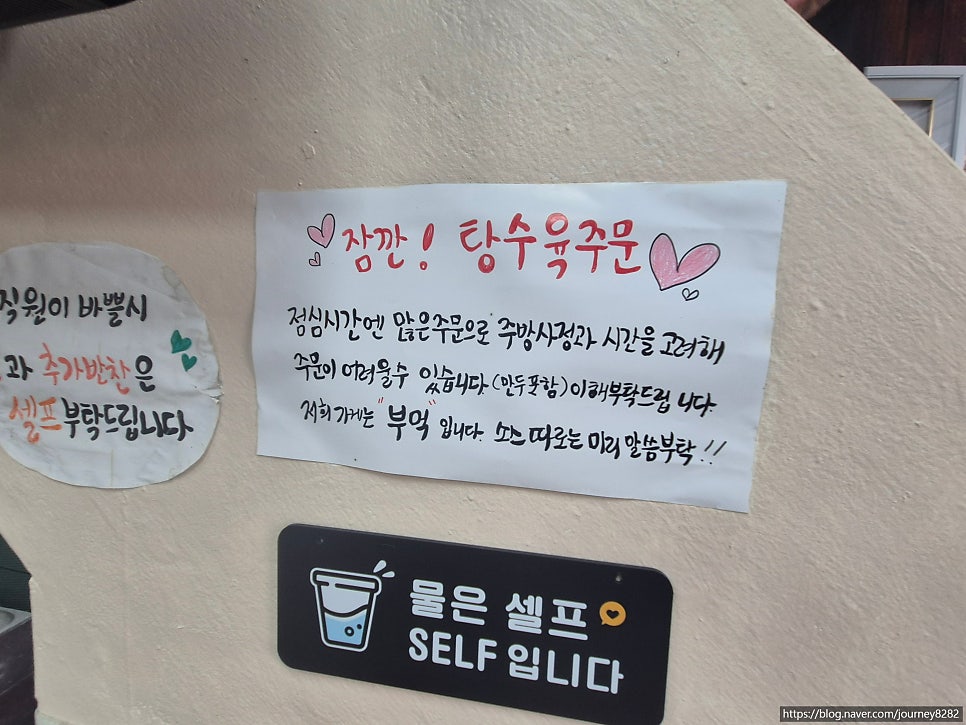 직원이 바쁠시
과 추가반찬은
셀프부탁드립니다
잠깐! 탕수육주문
점심시간엔 많은주문으로 주방사정과 시간을 고려해
주문이 어려울수 있습니다.(만두포함)이해부탁드립니다.
저희 가게는 "부먹"입니다. 소스 따로는 미리 말씀부탁!!
물은 셀프
SELF 입니다
https://blog.naver.com/journey8282